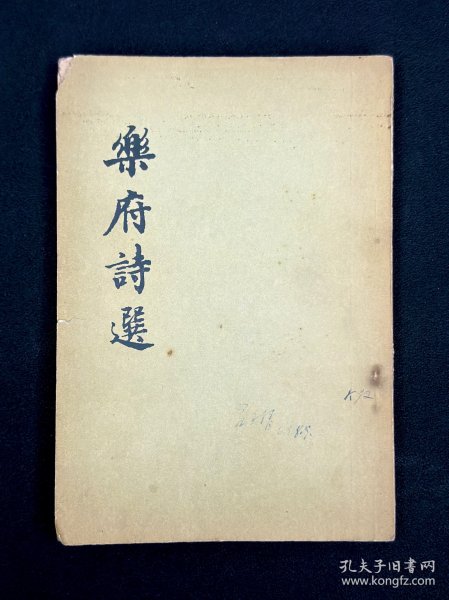 樂府詩選
K92
孔夫子旧书网
www.kongfz.com